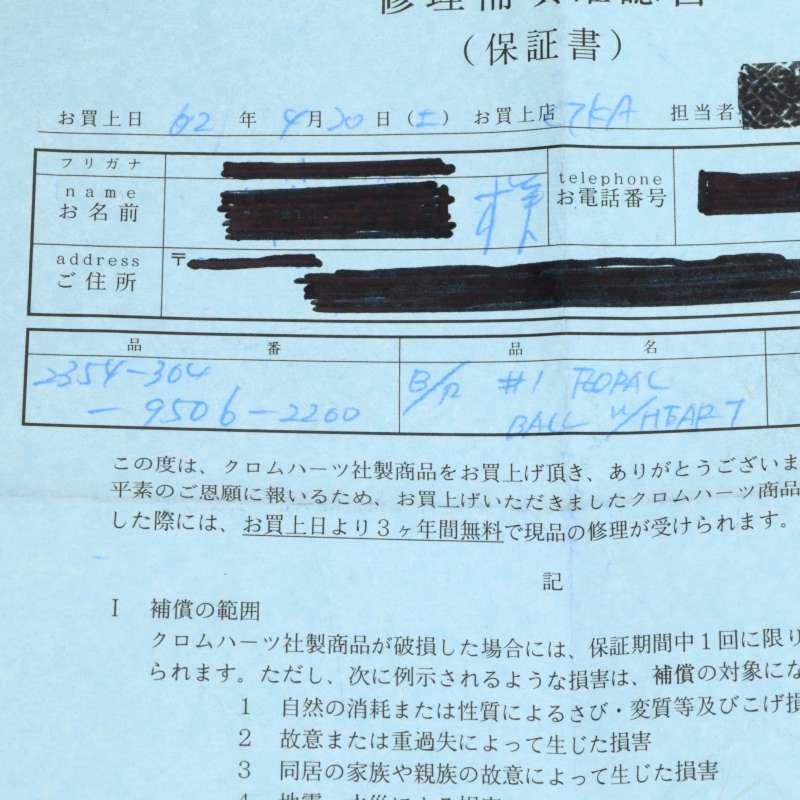 (保証書)
お買上日 02 年 4月20日(土) お買上店 担当者
フリガナ
name
お名前 様
telephone
お電話番号
address 〒
ご住所
品 番 品 名
2354-304 B/R #1 FLORAL
-9506-2200 BALL W/HEART
この度は、クロムハーツ社製商品をお買上げ頂き、ありがとうございま
平素のご恩顧に報いるため、お買上げいただきましたクロムハーツ商品
した際には、お買上日より3ヶ年間無料で現品の修理が受けられます。
記
I 補償の範囲
クロムハーツ社製商品が破損した場合には、保証期間中1回に限り
られます。ただし、次に例示されるような損害は、補償の対象にな
1 自然の消耗または性質によるさび・変質等及びこげ損
2 故意または重過失によって生じた損害
3 同居の家族や親族の故意によって生じた損害